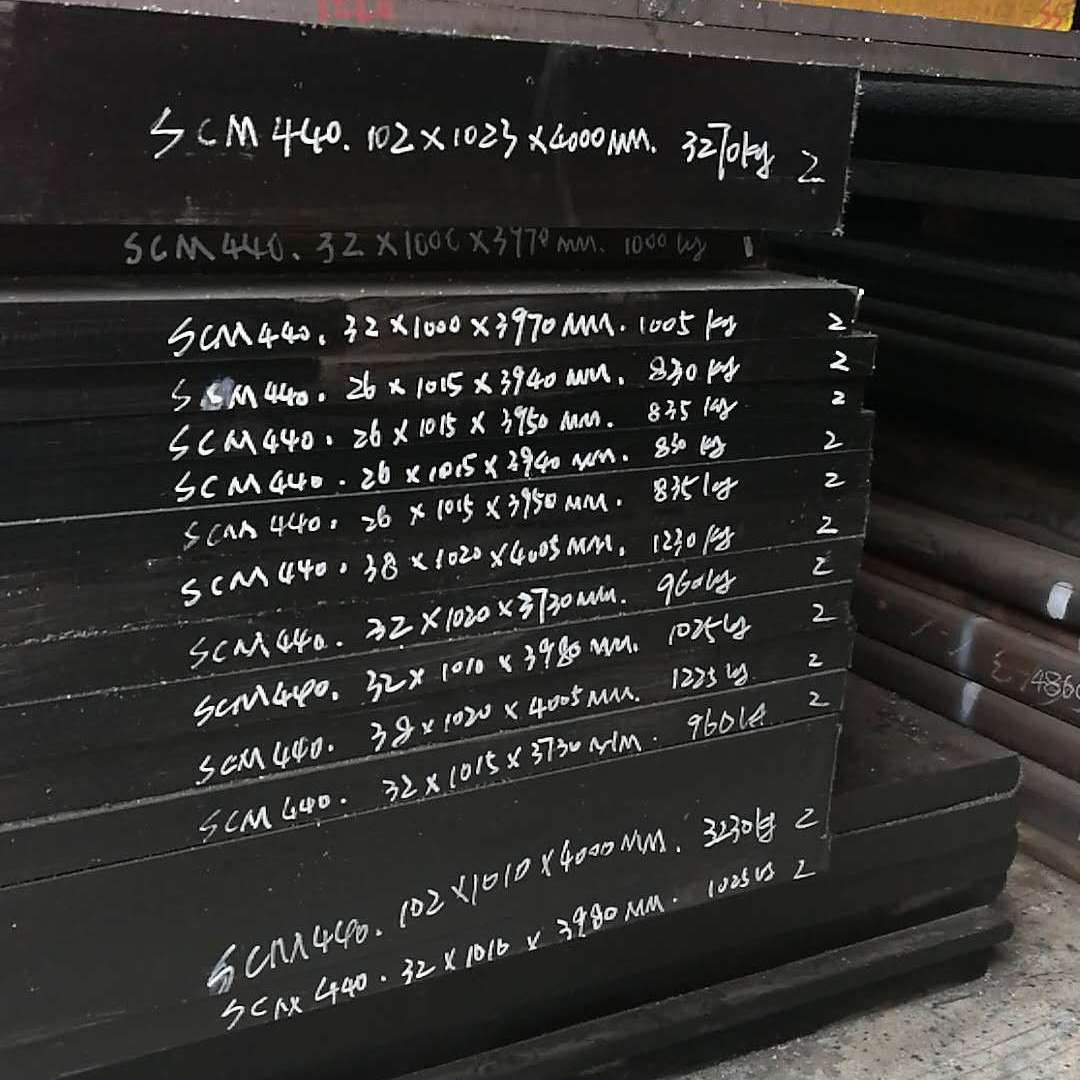 1220
SCM440. 102×1023×4000MM. 3270kg 2
SCM440. 32×1000×3970mm. 1000kg 1
SCM440. 32×1000×3970MM. 1005kg 2
SCM440. 26×1015×3940MM. 830kg 2
SCM440. 26×1015×3950MM. 835kg 2
SCM440. 26×1015×3940MM. 830kg 2
SCM440. 26×1015×3950MM. 835kg 2
SCM440. 38×1020×4005MM. 1230kg 2
SCM440. 32×1020×3730MM. 960kg 2
SCM440. 32×1010×3980MM. 1025kg 2
SCM440. 38×1020×4005MM. 1225kg 2
SCM440. 32×1015×3730MM. 960kg 2
SCM440. 102×1010×4000MM. 3230kg 2
SCM440. 32×1010×3980MM. 1025kg 2